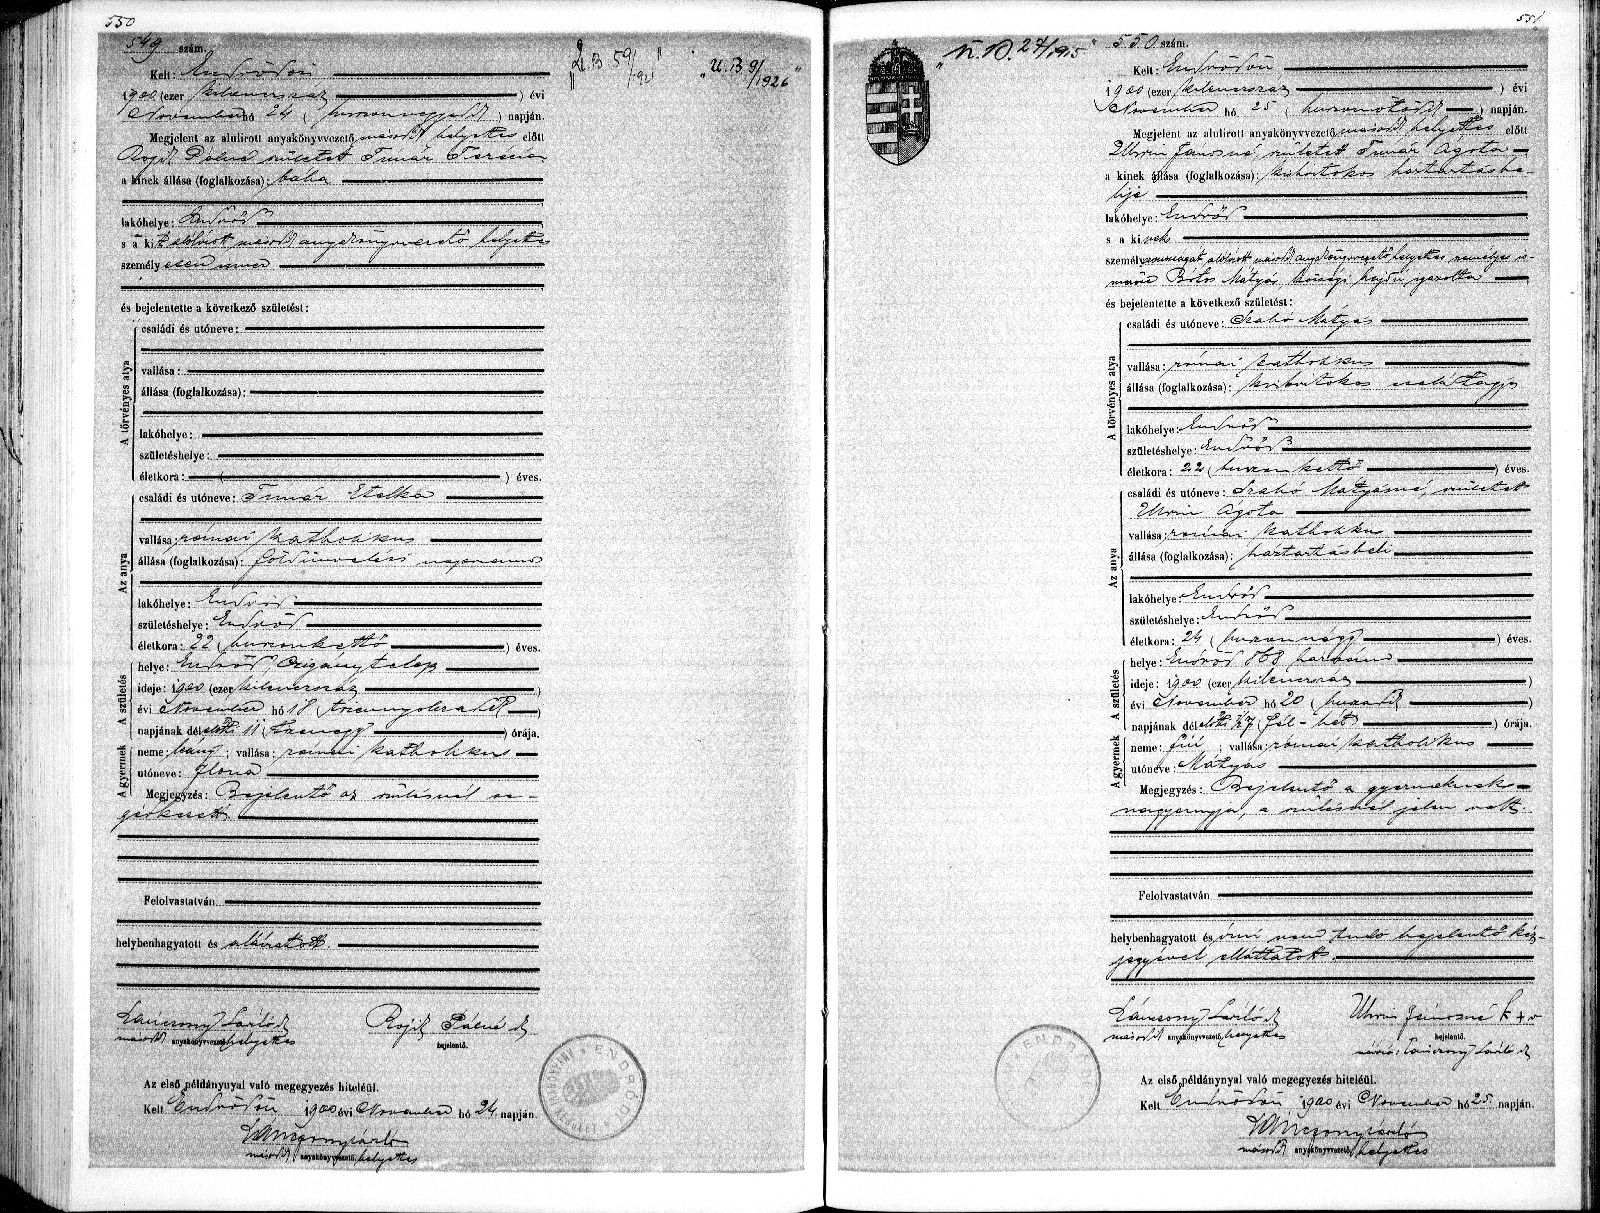 550
549 szám.
Kelt: Endrődön
1900 (ezer kilencszáz) évi
November hó 24 (huszonnegyedik) napján.
Megjelent az alulirott anyakönyvvezető másodh helyettes előtt
Pálné született Timár Terézia
a kinek állása (foglalkozása): baba
lakóhelye: Endrőd
s a kit alólirott másodh anyakönyvvezető helyettes
személyesen ismer
és bejelentette a következő születést:
A törvényes atya
családi és utóneve:
vallása:
állása (foglalkozása):
lakóhelye:
születéshelye:
életkora: ( ) éves.
Az anya
családi és utóneve: Timár Etelka
vallása: római katholikus
állása (foglalkozása): földmivelési napszámos
lakóhelye: Endrőd
születéshelye: Endrőd
életkora: 22 (huszonkettő) éves.
A születés
helye: Endrőd, Czigánytelep
ideje: 1900 (ezer kilencszáz)
évi November hó 18 (tizennyolczadik)
napjának délelőtti 11 (tizenegy) órája.
A gyermek
neme: leány; vallása: római katholikus
utóneve: Ilona
Megjegyzés: Bejelentő az szülésnél se-
gédkezett
Felolvastatván
helybenhagyatott és aláiratott.
Lánczony László
másodh anyakönyvvezető helyettes
Pálné
bejelentő.
Az első példánynyal való megegyezés hiteléül.
Kelt Endrődön 1900 évi November hó 24. napján.
Lánczony László
másodh anyakönyvvezető helyettes
ENDRŐD
"U. B 59/921"
"U. B 9/1926"
551
"U. B. 27/1915"
550 szám.
Kelt: Endrődön
1900 (ezer kilencszáz) évi
November hó 25 (huszonötödik) napján.
Megjelent az alulirott anyakönyvvezető másodh helyettes előtt
Uhrin Jánosné, született Timár Ágota
a kinek állása (foglalkozása): kisbirtokos háztartásbe-
lije
lakóhelye: Endrőd
s a kinek
személyazonosságát alólirott másodh anyakönyvvezető helyettes személyes is-
merőse Botos Mátyás, községi hajdú igazolta
és bejelentette a következő születést:
A törvényes atya
családi és utóneve: Szabó Mátyás
vallása: római katholikus
állása (foglalkozása): kisbirtokos családtagja
lakóhelye: Endrőd
születéshelye: Endrőd
életkora: 22 (huszonkettő) éves.
Az anya
családi és utóneve: Szabó Mátyásné, született
Uhrin Ágota
vallása: római katholikus
állása (foglalkozása): háztartásbeli
lakóhelye: Endrőd
születéshelye: Endrőd
életkora: 24 (huszonnégy) éves.
A születés
helye: Endrőd 868 házszám
ideje: 1900 (ezer kilencszáz)
évi November hó 20 (huszadik)
napjának délelőtti ½7 (fél-hét) órája.
A gyermek
neme: fiú; vallása: római katholikus
utóneve: Mátyás
Megjegyzés: Bejelentő a gyermeknek
nagyanyja, a szülésnél jelen volt.
Felolvastatván
helybenhagyatott és írni nem tudó bejelentő kéz-
jegyével elláttatott.
Lánczony László
másodh anyakönyvvezető helyettes
Uhrin Jánosné k + v
bejelentő.
névíró: Lánczony László
Az első példánynyal való megegyezés hiteléül.
Kelt Endrődön 1900 évi November hó 25. napján.
Lánczony László
másodh anyakönyvvezető helyettes
ENDRŐD